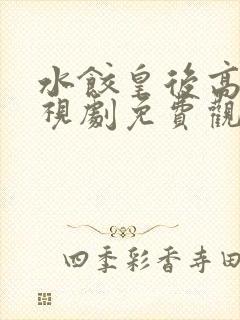 水餃皇後高
視劇免費觀
四季彩香寺田